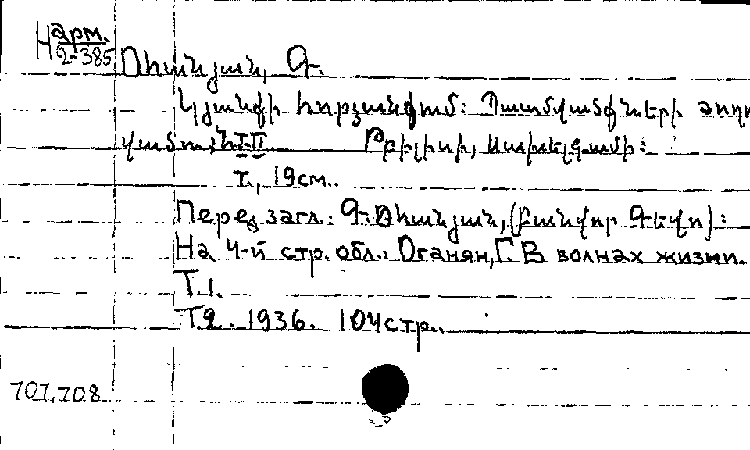 Н арм.
2-385
Օհանյան, Գ.
Կյանքի հորձանքում: Պատմվածքների ժողո
վածու, I-II Թբիլիսի, Սաբելգամի:
т., 19см.
Перед загл.: Գ. Օհանյան, (Բանվոր Գեվո):
На 4-й стр. обл.: Оганян, Г. В волнах жизни.
Т.1.
Т.2. 1936. 104стр.
707,708